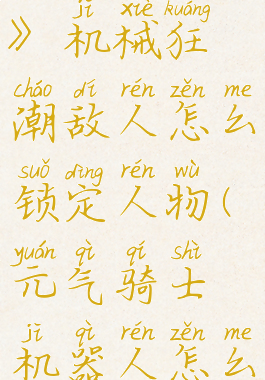 jī xiè kuáng
》机械狂
cháo dí rén zěn me
潮敌人怎么
suǒ dìng rén wù
锁定人物(
yuán qì qí shì
元气骑士
jī qì rén zěn me
机器人怎么